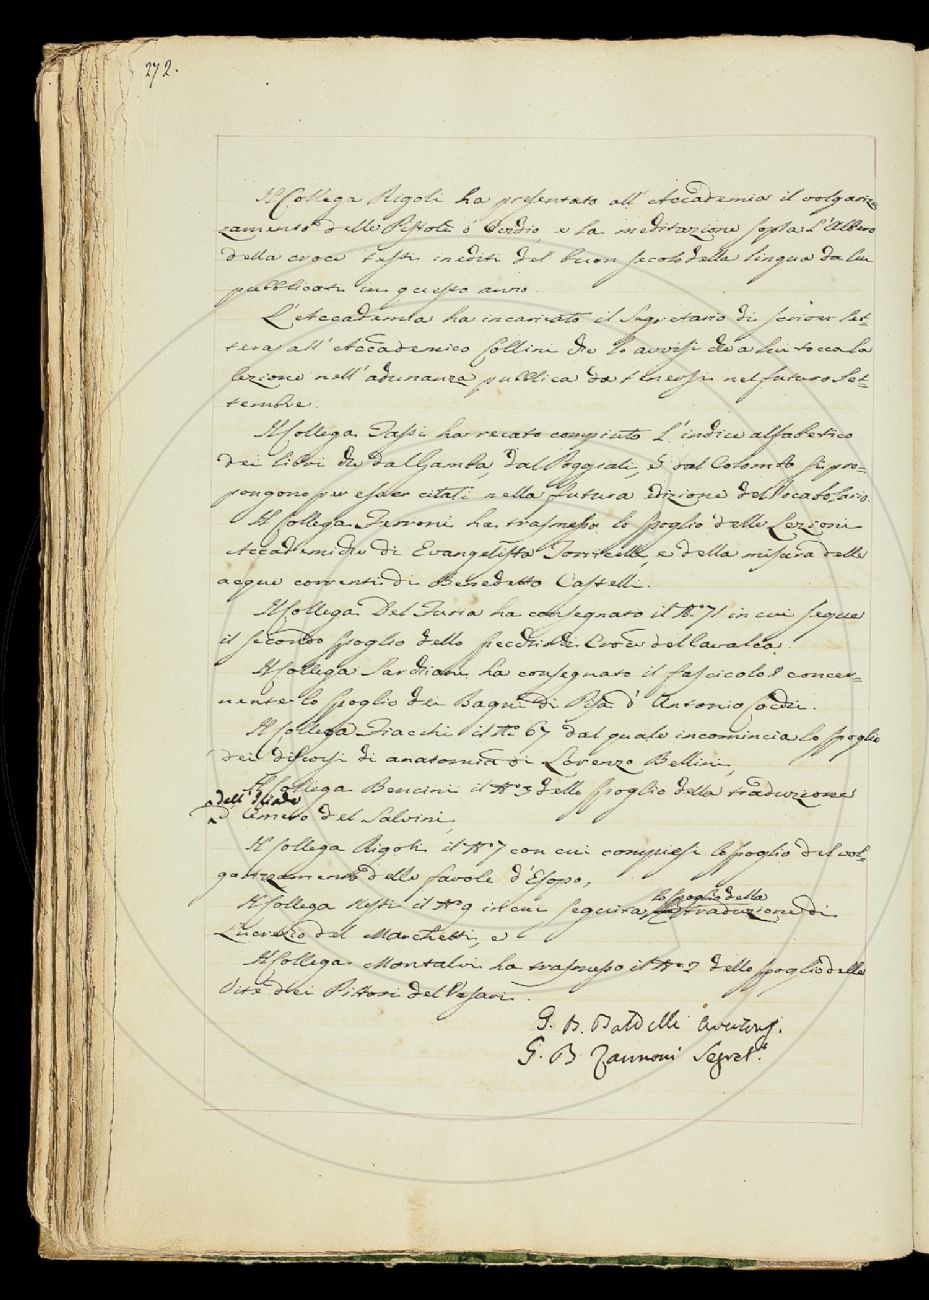 272.
Il Collega Rigoli ha presentato all'Accademia il volgariz=
zamento delle Pistole d'Ovidio, e la meditazione sopra l'Albero
della croce testi inediti del buon secolo della lingua da lui
pubblicati in questo anno.
L'Accademia ha incaricato il Segretario di scriver let=
tera all'Accademico Collini che lo avvisi che a lui tocca la
lezione nell'adunanza pubblica da tenersi nel futuro Set=
tembre.
Il Collega Fassi ha recato compiuto l'indice alfabetico
dei libri che dal Gamba, dal Poggiali, e dal Colombo si pro=
pongono per esser citati nella futura edizione del Vocabolario.
Il Collega Ferroni ha trasmesso lo spoglio delle Lezioni
Accademiche di Evangelista Torricelli, e della misura delle
acque correnti di Benedetto Castelli.
Il Collega Del Furia ha consegnato il N.° 71 in cui segue
il secondo spoglio dello specchio di Croce del Cavalca.
Il Collega Sarchiani ha consegnato il fascicolo 8 concer=
nente lo spoglio dei Bagni di Pisa d'Antonio Cocchi.
Il Collega Fiacchi il N.° 67 dal quale incomincia lo spoglio
dei discorsi di anatomia di Lorenzo Bellini,
Il Collega Bencini il N.° 3 dello spoglio della traduzione
dell'Iliade
d'Omero del Salvini,
Il Collega Rigoli il N.° 7 con cui compiesi lo spoglio del vol=
garizzamento delle favole d'Esopo,
Il Collega Nesti il N.° 9 in cui seguita lo spoglio della traduzione di
Lucrezio del Marchetti, e
Il Collega Montalvi ha trasmesso il N.° 2 dello spoglio delle
Vite dei Pittori del Vasari.
G. B. Baldelli
G. B. Zannoni Segret.°